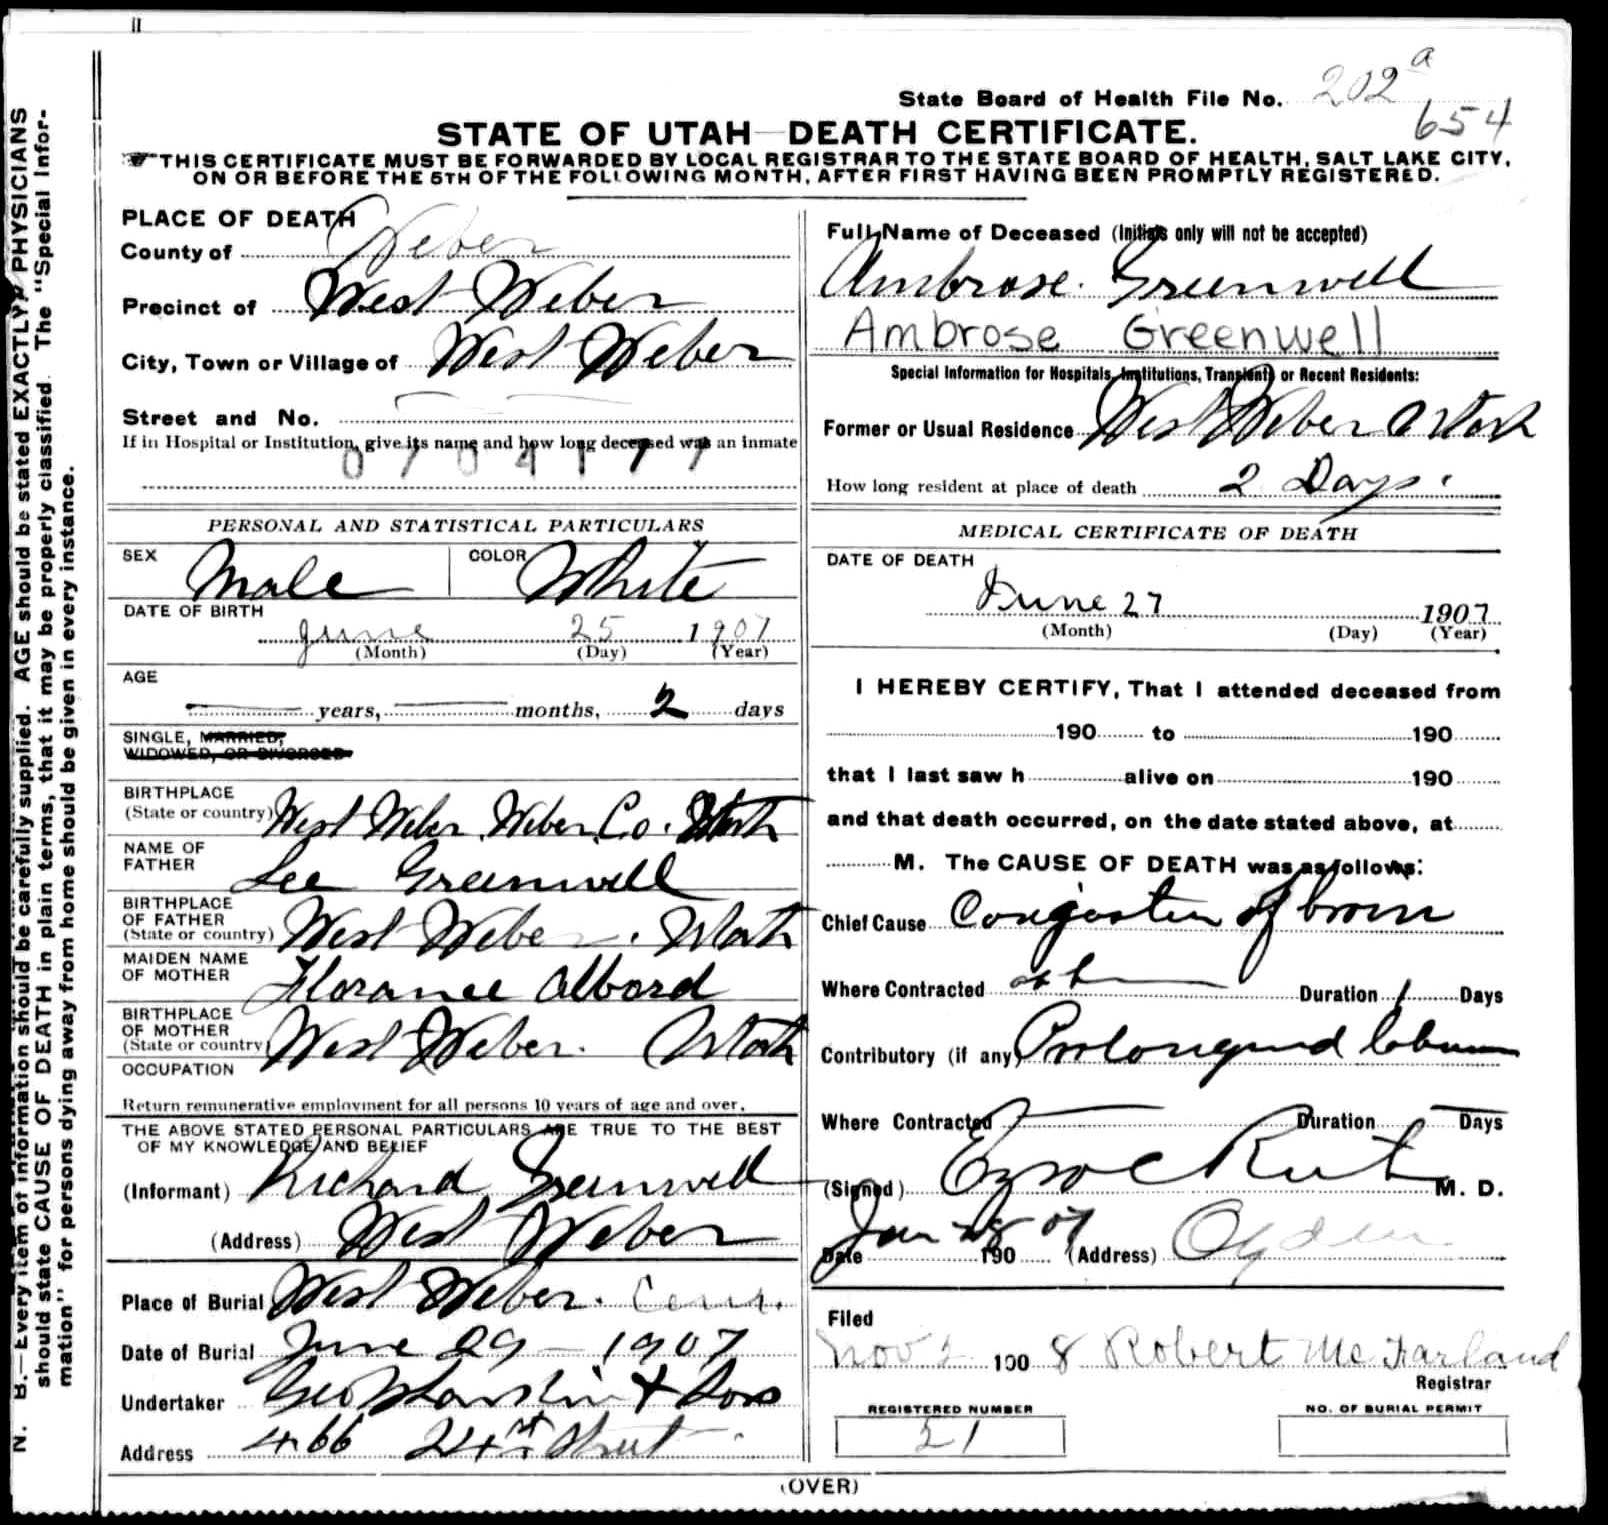 State Board of Health File No. 202 a
654
STATE OF UTAH—DEATH CERTIFICATE.
THIS CERTIFICATE MUST BE FORWARDED BY LOCAL REGISTRAR TO THE STATE BOARD OF HEALTH, SALT LAKE CITY,
ON OR BEFORE THE 5TH OF THE FOLLOWING MONTH, AFTER FIRST HAVING BEEN PROMPTLY REGISTERED.
N. B.—Every item of information should be carefully supplied. AGE should be stated EXACTLY. PHYSICIANS
should state CAUSE OF DEATH in plain terms, that it may be properly classified. The "Special Infor-
mation" for persons dying away from home should be given in every instance.
PLACE OF DEATH
County of Weber
Precinct of West Weber
City, Town or Village of West Weber
Street and No.
If in Hospital or Institution, give its name and how long deceased was an inmate
PERSONAL AND STATISTICAL PARTICULARS
SEX Male COLOR White
DATE OF BIRTH
June 25 1907
(Month) (Day) (Year)
AGE
years, months, 2 days
SINGLE, MARRIED,
WIDOWED, OR DIVORCED
BIRTHPLACE
(State or country) West Weber Weber Co. Utah
NAME OF
FATHER Lee Greenwell
BIRTHPLACE
OF FATHER
(State or country) West Weber. Utah
MAIDEN NAME
OF MOTHER Florance Albord
BIRTHPLACE
OF MOTHER
(State or country) West Weber. Utah
OCCUPATION
Return remunerative employment for all persons 10 years of age and over.
THE ABOVE STATED PERSONAL PARTICULARS ARE TRUE TO THE BEST
OF MY KNOWLEDGE AND BELIEF
(Informant) Richard Greenwell
(Address) West Weber
Place of Burial West Weber. Cem.
Date of Burial June 29 - 1907
Undertaker Geo Larkin & Sons
Address 466 24th Street
Full Name of Deceased (Initials only will not be accepted)
Ambrose Greenwell
Ambrose Greenwell
Special Information for Hospitals, Institutions, Transients or Recent Residents:
Former or Usual Residence West Weber Utah
How long resident at place of death 2 Days.
MEDICAL CERTIFICATE OF DEATH
DATE OF DEATH
June 27 1907
(Month) (Day) (Year)
I HEREBY CERTIFY, That I attended deceased from
190 to 190
that I last saw h alive on 190
and that death occurred, on the date stated above, at
M. The CAUSE OF DEATH was as follows:
Chief Cause Congestion of brain
Where Contracted Duration 1 Days
Contributory (if any) Prolongued labour
Where Contracted Duration Days
(Signed) M. D.
Date Jun 28 1907 (Address) Ogden
Filed
Nov 2 190 8 Robert McFarland
Registrar
REGISTERED NUMBER
51
NO. OF BURIAL PERMIT
(OVER)